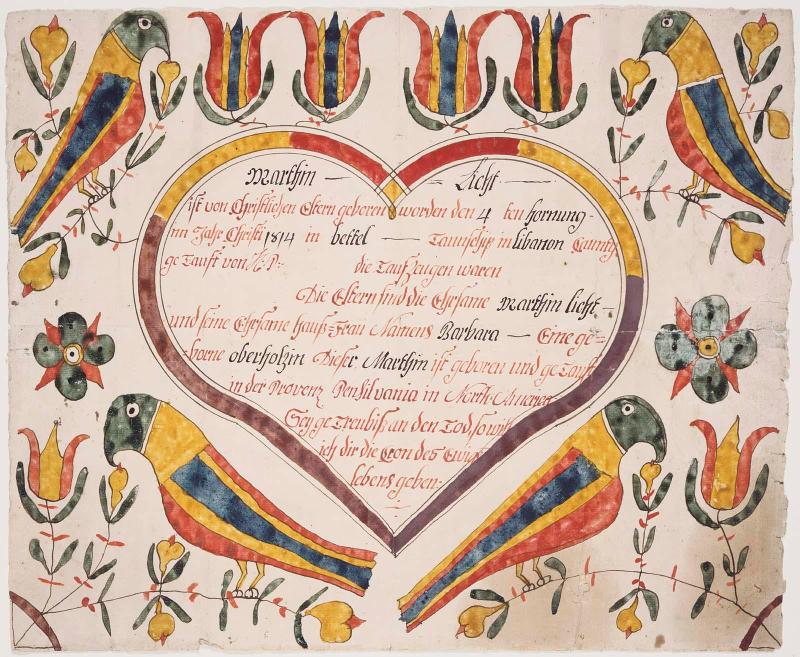 Marthin — Licht —
ist von Christlichen Eltern geboren worden den 4 ten hornung-
im Jahr Christi 1814 in bethel — Taunschip in libanon Caunty
ge Taufft von die Taufzeugen waren
Die Eltern sind die Ehrsame Marthin licht —
und seine Ehrsame hauss-Frau Namens Barbara — Eine ge-
borne oberholzin Dieser Marthin ist geboren und ge Taufft
in der Provenz Pensilvania in North-America
Sey ge Treu biss an den Tod so will
ich dir die Cron des Ewig
lebens geben-